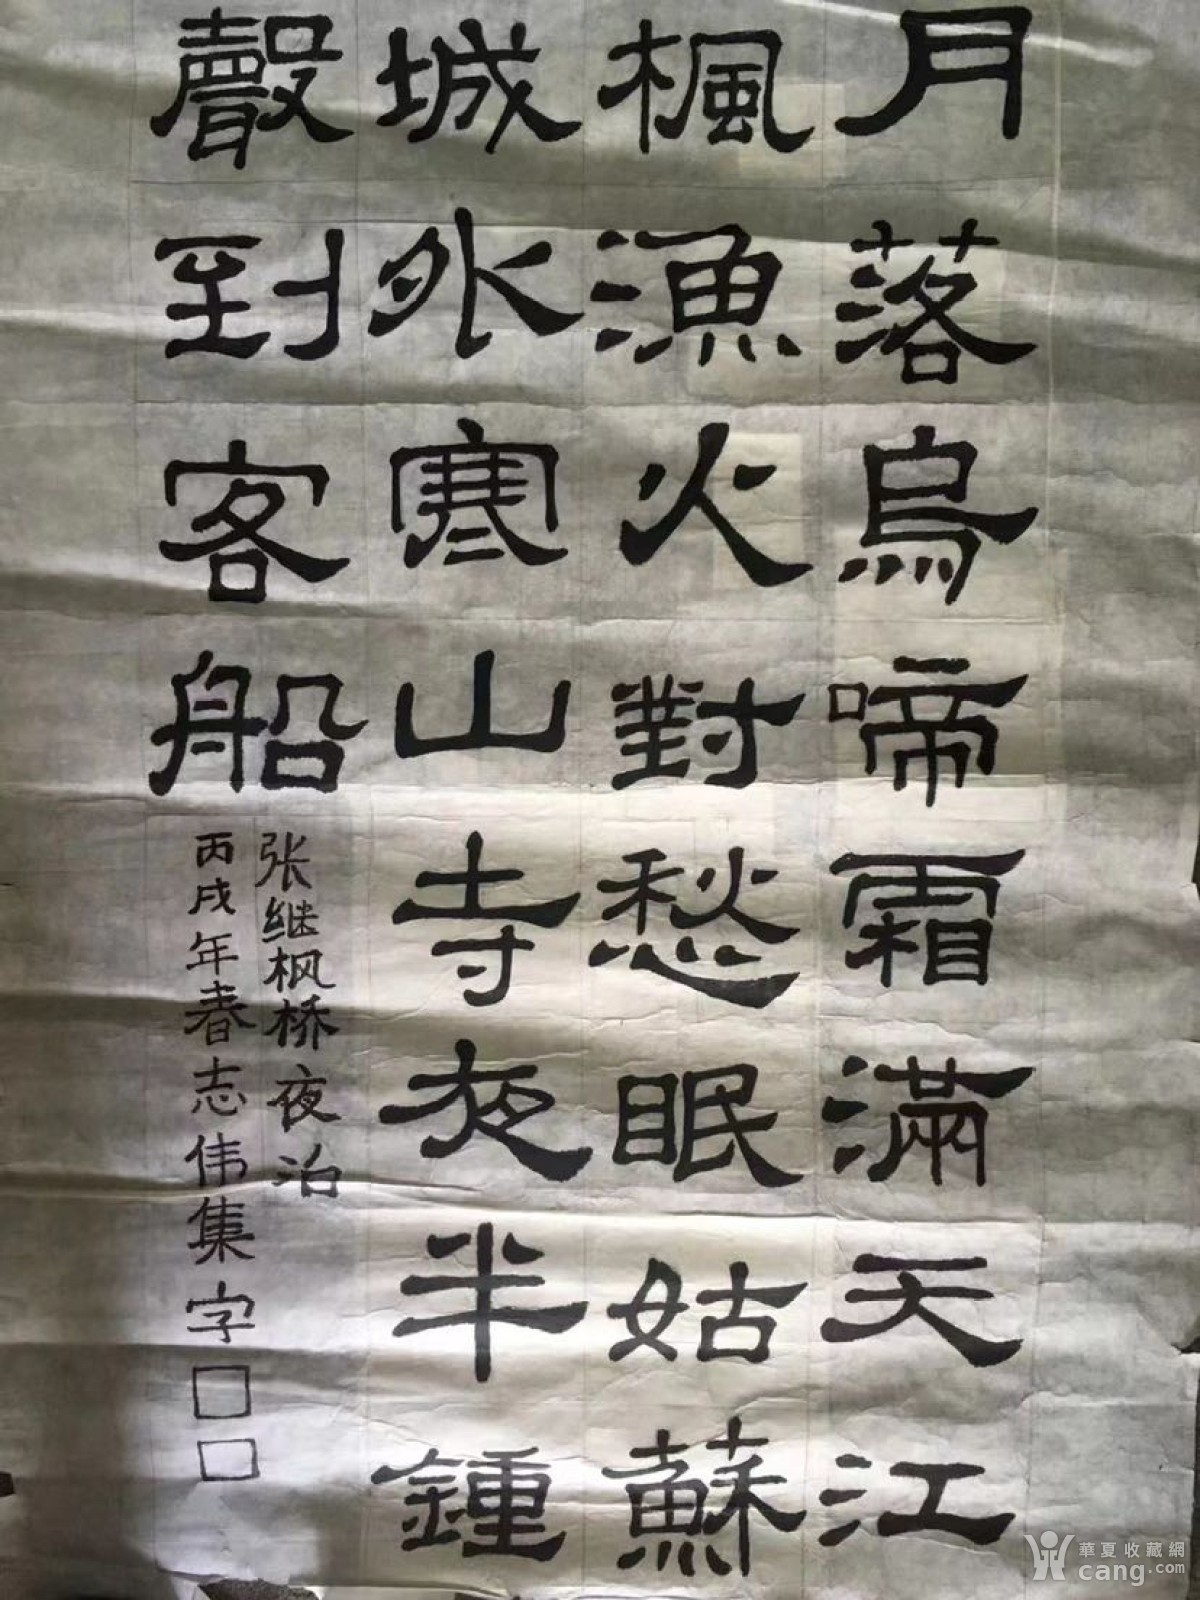 月落烏啼霜滿天江
楓漁火對愁眠姑蘇
城外寒山寺夜半鍾
聲到客船
张继枫桥夜泊
丙戌年春志伟集字
華夏收藏網
cang.com